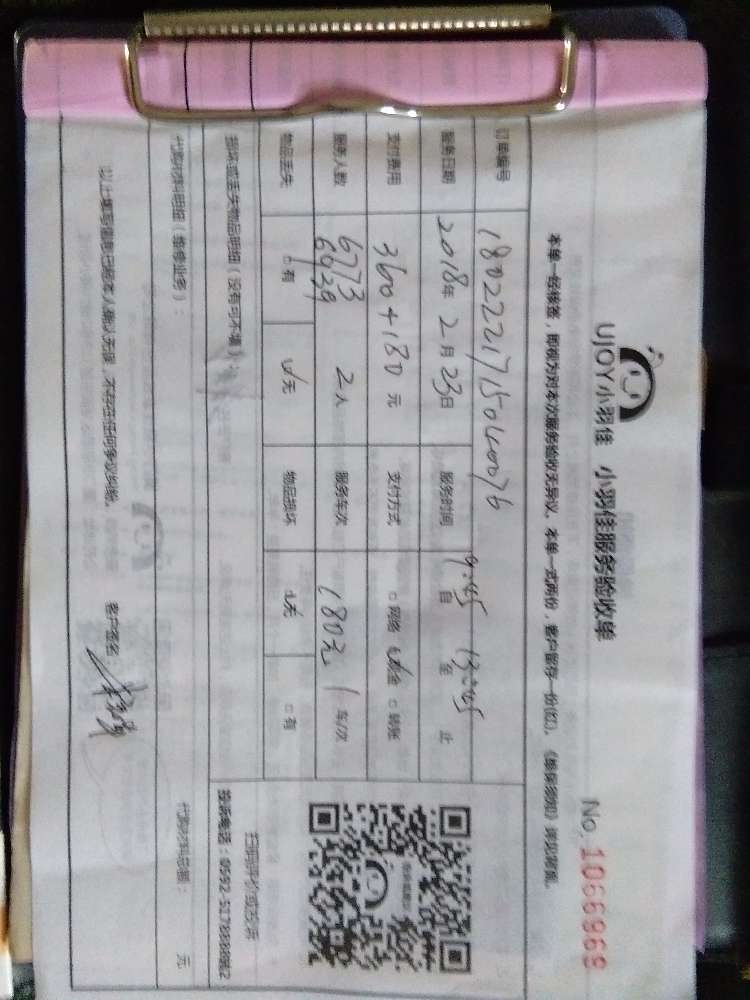 UJOY小羽佳 小羽佳服务验收单
No. 1066969
本单一经接签，即视为对本次服务验收无异议。本单一式两份，客户留存一份(红)。
订单编号
服务日期 2018年 2月 23日 服务时间 9:45 自 13:45 至 止
支付费用 3600+180 元 支付方式 □网络 ☑现金 □转账
服务人数 6773 6939 2人 服务车次 180元 1 车/次
物品丢失 □有 ☑无 物品损坏 ☑无 □有
损坏或丢失物品明细（没有可不填）：
扫码评价或投诉
投诉电话：0592-5178888转2
代购材料明细（维修业务）：
代购材料总额： 元
以上填写信息已经本人确认无误，不存在任何争议纠纷。 客户签名：